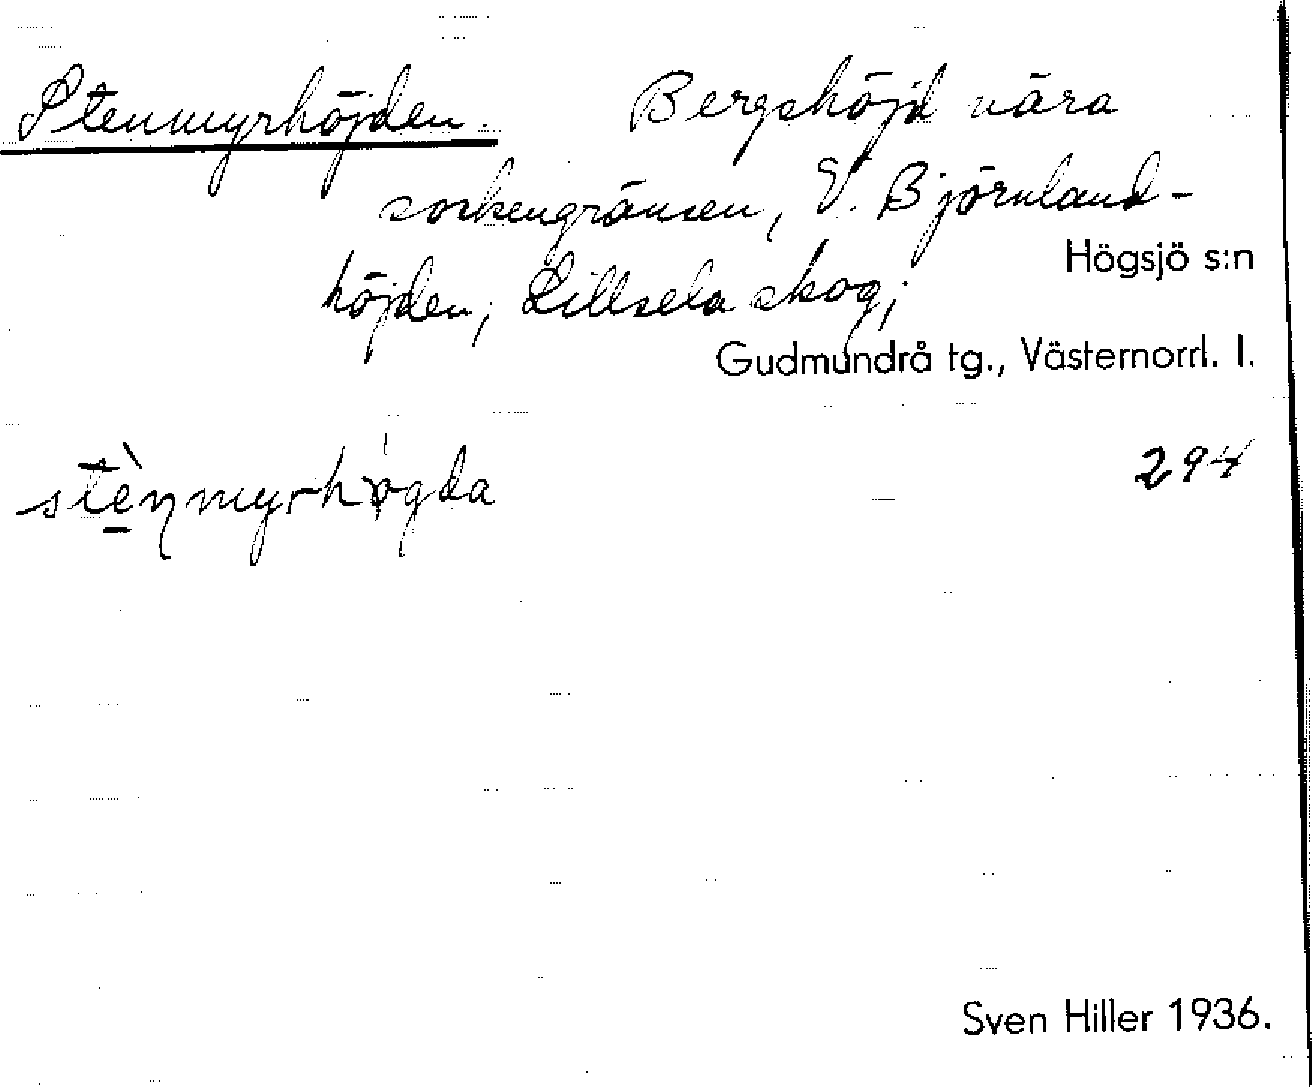 Stenmyrhöjden. Bergshöjd nära
sockengränsen, V. Björnland-
höjden, Lillsela skog,
Högsjö s:n
Gudmundrå tg., Västernorrl. l.
294
Sven Hiller 1936.